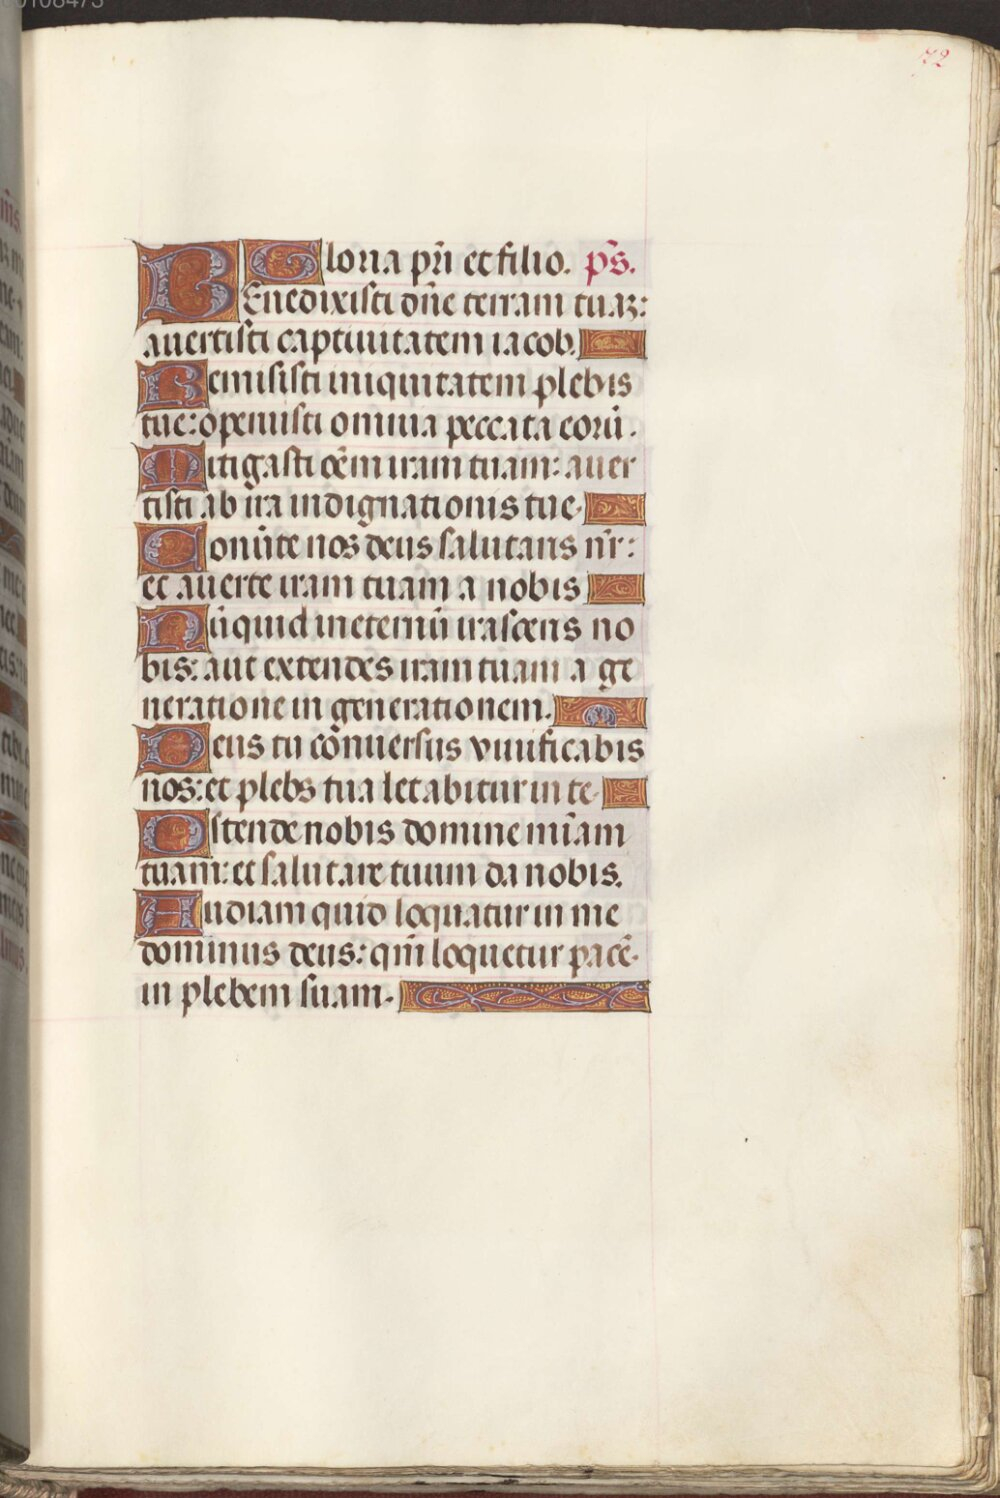 72
Gloria pr̃i et filio. p̃s.
Benedixisti dñe terram tuaꝫ:
auertisti captiuitatem iacob.
Remisisti iniquitatem plebis
tue: operuisti omnia peccata eorũ.
Mitigasti oẽm iram tuam: auer
tisti ab ira indignationis tue.
Conũte nos deus salutaris nr̃:
et auerte iram tuam a nobis
Nũquid in eternũ irasceris no
bis: aut extendes iram tuam a ge
neratione in generationem.
Deus tu cõnuersus viuificabis
nos: et plebs tua letabitur in te.
Ostende nobis domine mĩam
tuam: et salutare tuum da nobis.
Audiam quid loquatur in me
dominus deus: qm̃ loquetur pacẽ.
in plebem suam.